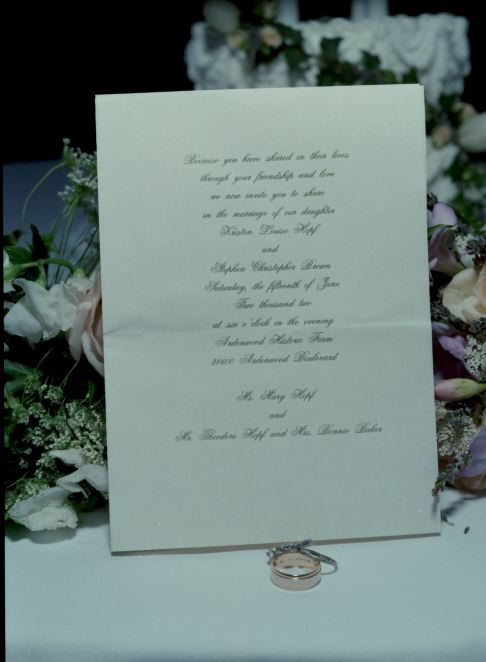 Because you have shared in their lives
through your friendship and love
we now invite you to share
in the marriage of our daughter
Kristen Louise Hopf
and
Stephen Christopher Brown
Saturday, the fifteenth of June
Two thousand two
at six o'clock in the evening
Ardenwood Historic Farm
34600 Ardenwood Boulevard
Ms. Mary Hopf
and
Mr. Theodore Hopf and Mrs. Bonnie Baker